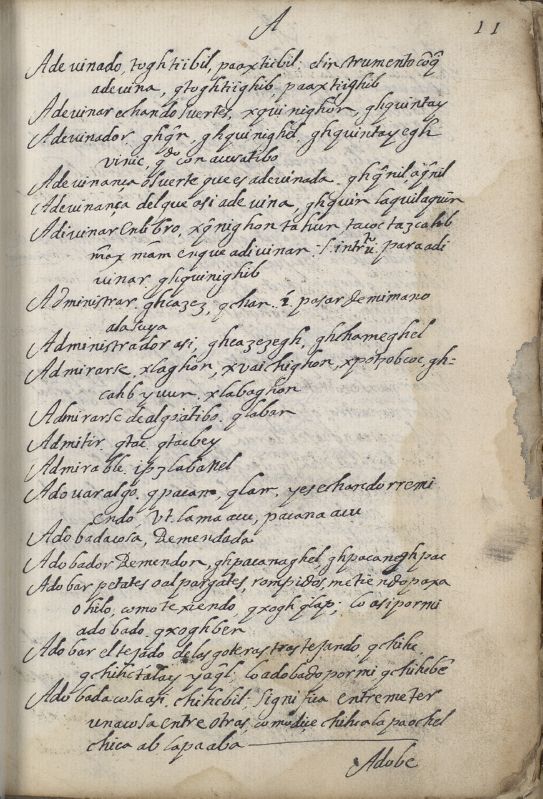 A
11
Adevinado, toghtiibil, paaxtiibil; elinstrumento cõq̃
adevina, qtoghtiighib, paaxtiighib
Adevinar echando suertes, xquinighon, ghquintay
Adevinador, ghq̃n, ghquinighel, ghquintayegh
vinic, con acusatibo
Adevinança o suerte que es adevinada. ghq̃nil,
Adevinança del que asi adevina,
Adivinar Enlibro, xq̃nighon ta hun
en que adivinar para adi
vinar, ghquinighib
Administrar, ghcazez, qchan. pasar Demimano
ala suya
Administrador asi, ghcazezegh, ghchameghel
Admirarse, xlaghon, xvaichighon, xpotpobcoc, gh=
cahb yuun, xlabaghon
Admirarse de algo atibo. qlaban
Admitir, qtac, qtacbey
Admirable, labanel
Adovar algo, qpacan, qlan, yes echandorremi
endo, vt. lama acu, pacana acu
Adobada cosa, Demendada
Adobador Demendon, ghpacanaghel, ghpacaneghpac
Adobar petates o alpargates, rompidos metiendo paxa
o hilo, como texiendo, qxogh lo asi por mi
adobado, qxoghben
Adobar el tejado de las goteras trastejando, qchihc,
qchihctalay lo adobado por mi qchihcbẽ
Adobada cosa asi, chihcbil. Significa entremeter
una cosa entre otras, como dice, chihca la paochel
chica ab lapaaba
Adobe